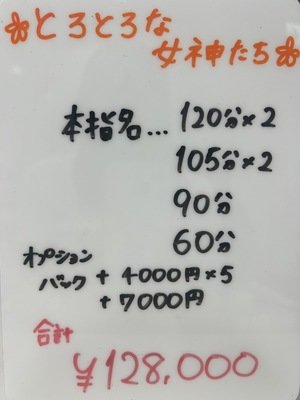 ✿とろとろな
女神たち✿
本指名...120分×2
105分×2
90分
60分
オプション
バック + 4000円×5
+ 7000円
合計
¥128,000